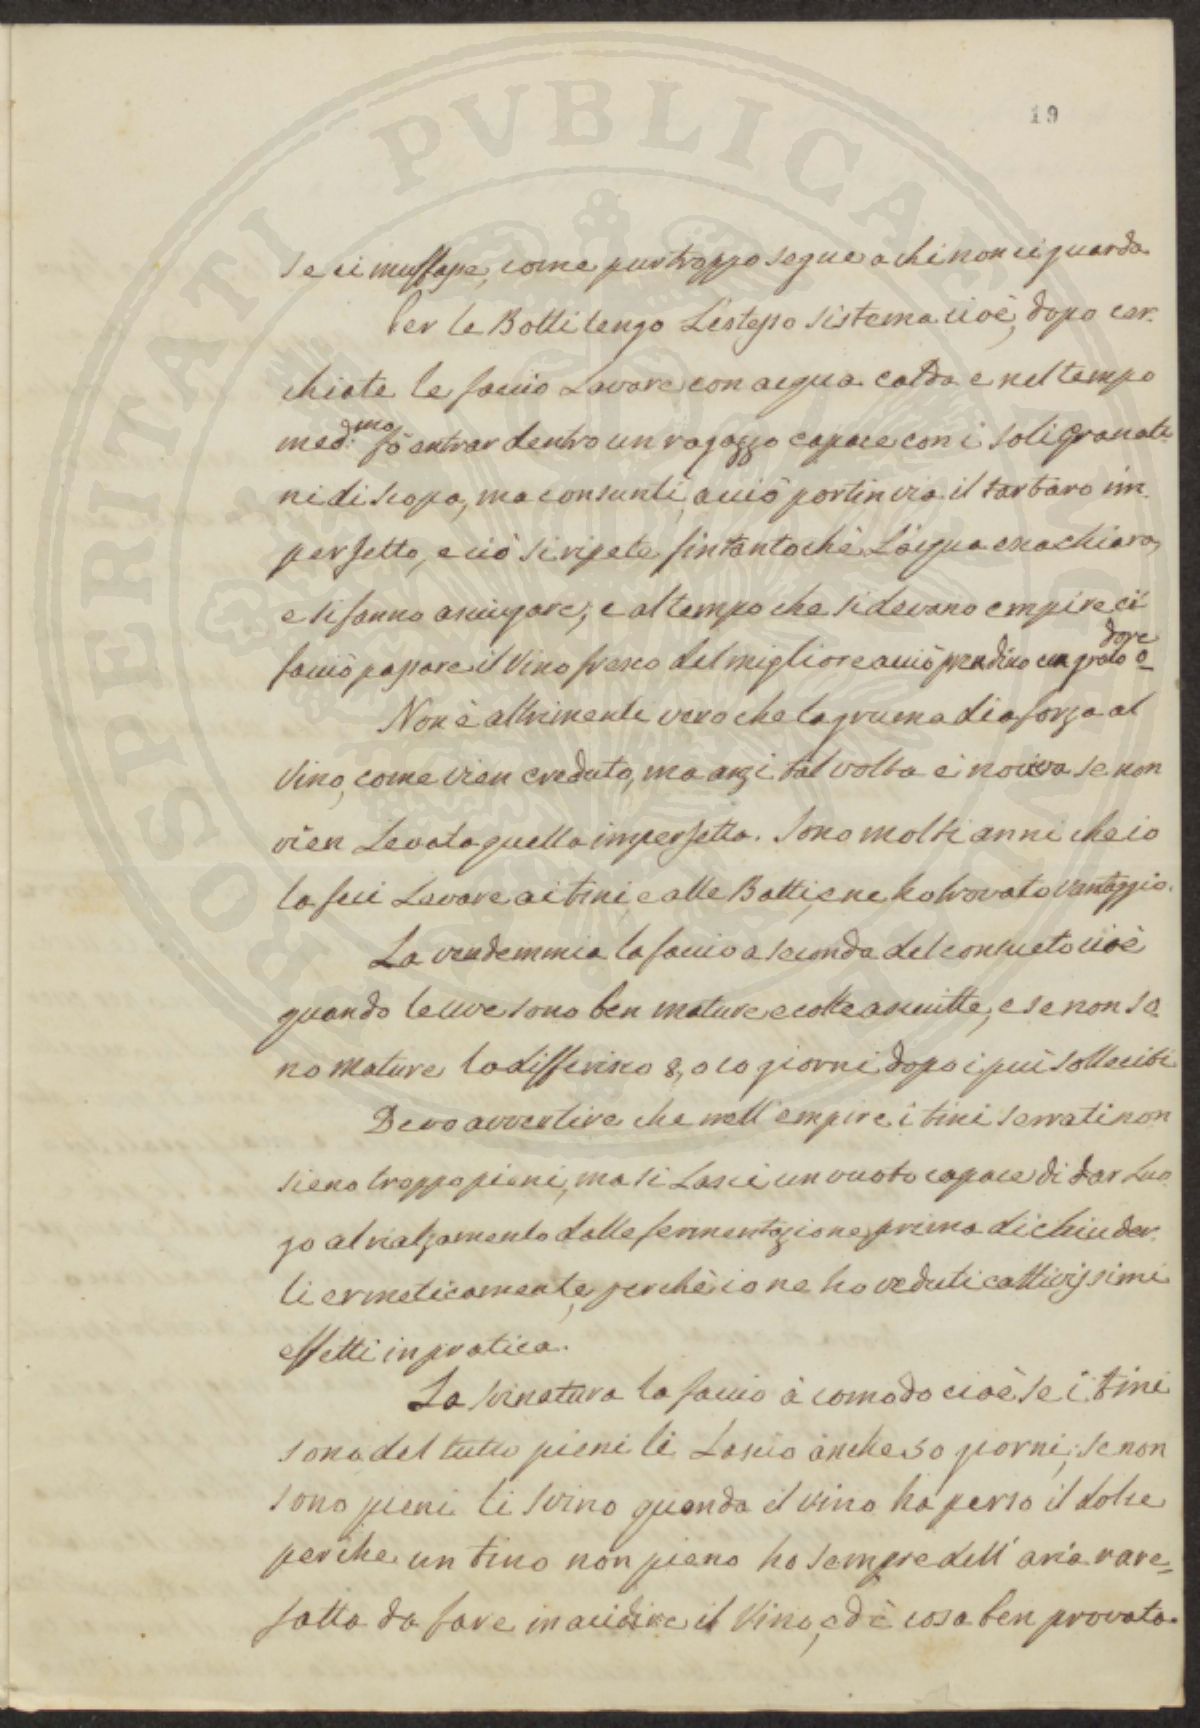 19
se ci muffasse, come purtroppo segue a chi non ci guarda.
Per le Botti tengo L'istesso sistema cioè, dopo cer-
chiate le faccio Lavare con acqua calda e nel tempo
med:mo fò entrar dentro un ragazzo capace con i soli granati-
ni di scopa, ma consunti, acciò portin via il tartaro im-
perfetto, e ciò si ripete fintantochè L'acqua esca chiara,
e si fanno asciugare; e al tempo che si devano empire ci
faccio passare il Vino fresco del migliore acciò prendino un grato o-
dore
Non è altrimenti vero che la gruma dia forza al
Vino, come vien creduto, ma anzi tal volta è nociva se non
vien Levata quella imperfetta. Sono molti anni che io
la feci Lavare ai tini, e alle Botti, e ne ho trovato vantaggio.
La vendemmia la faccio a seconda del consueto cioè
quando le uve sono ben mature e colte asciutte, e se non so-
no mature la differisco 8, o 10 giorni dopo i più solleciti
Devo avvertire che nell'empire i tini serrati non
sieno troppo pieni, ma si Lasci un vuoto capace di dar Luo-
go al rialzamento dalle fermentazione, prima di chiuder-
li ermeticamente, perchè io ne ho veduti cattivissimi
effetti in pratica.
La svinatura la faccio à comodo cioè se i tini
sono del tutto pieni li Lascio anche 30 giorni; se non
sono pieni li svino quando il vino ha perso il dolce
perche un tino non pieno ha sempre dell'aria rare-
fatta da fare inacidire il Vino, ed è cosa ben provata.
PROSPERITATI PVBLICAE AVGENDAE